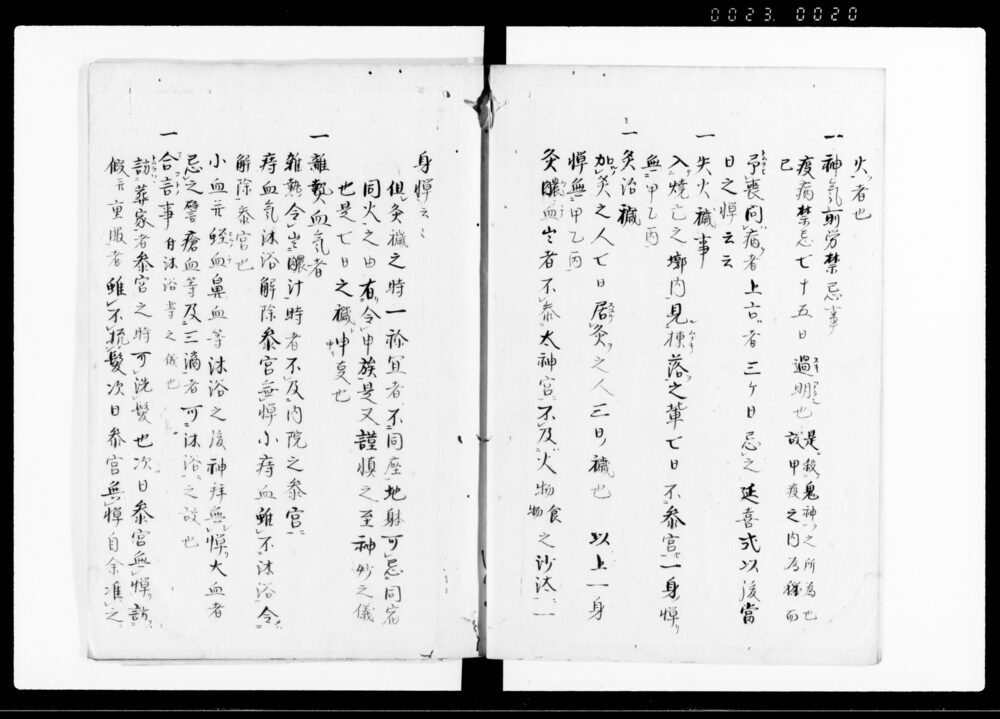 0023. 0020
火者也
一 神気所労禁忌事
疫病禁忌七十五日過明也 是殺鬼神之所為也
故甲疫之内為穢而
已
予喪問病者上古者三ケ日忌之延喜式以後當
日之憚云云
一 失火穢事
入焼亡之墎内見棟落之輩七日不参宮一身憚
無甲乙丙
一 灸治穢
加灸之人七日居灸之人三日穢也 以上一身
憚無甲乙丙
灸膿血出者不参太神宮不及火物食物之沙汰一
身憚云々
但灸穢之時一祢宜者不同座地躰可忌同宿
同火之由有令申族是又謹慎之至神妙之儀
也是七日之穢中事也
一 雑熱血気者
雑熱令出膿汁時者不及内院之参宮
痔血気沐浴解除参宮無憚小痔血雖不沐浴令
解除参宮也
小血亦蛭血鼻血等沐浴之後神拜無憚大血者
忌之譬瘡血等及三滴者可沐浴之故也
一 合言事 付沐浴等之儀也
訪葬家者参宮之時可洗髪也次日参宮無憚訪
假亦重服者雖不梳髪次日参宮無憚自余准之